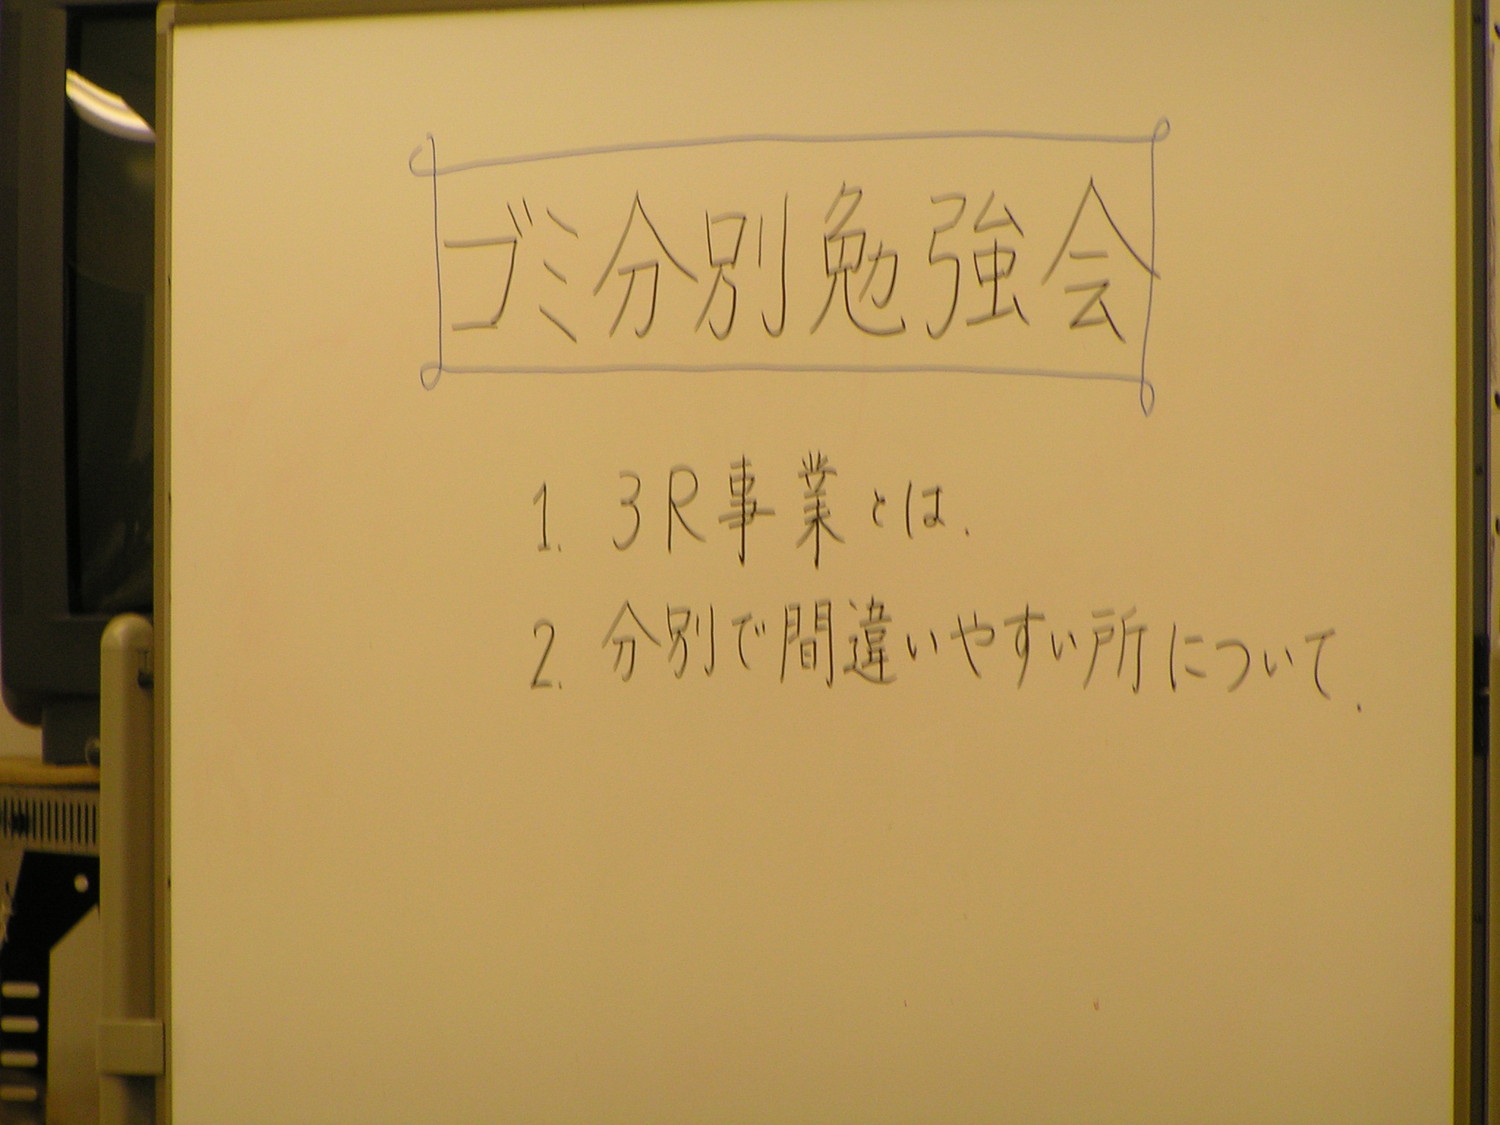 ゴミ分別勉強会
1. 3R事業とは.
2. 分別で間違いやすい所について.